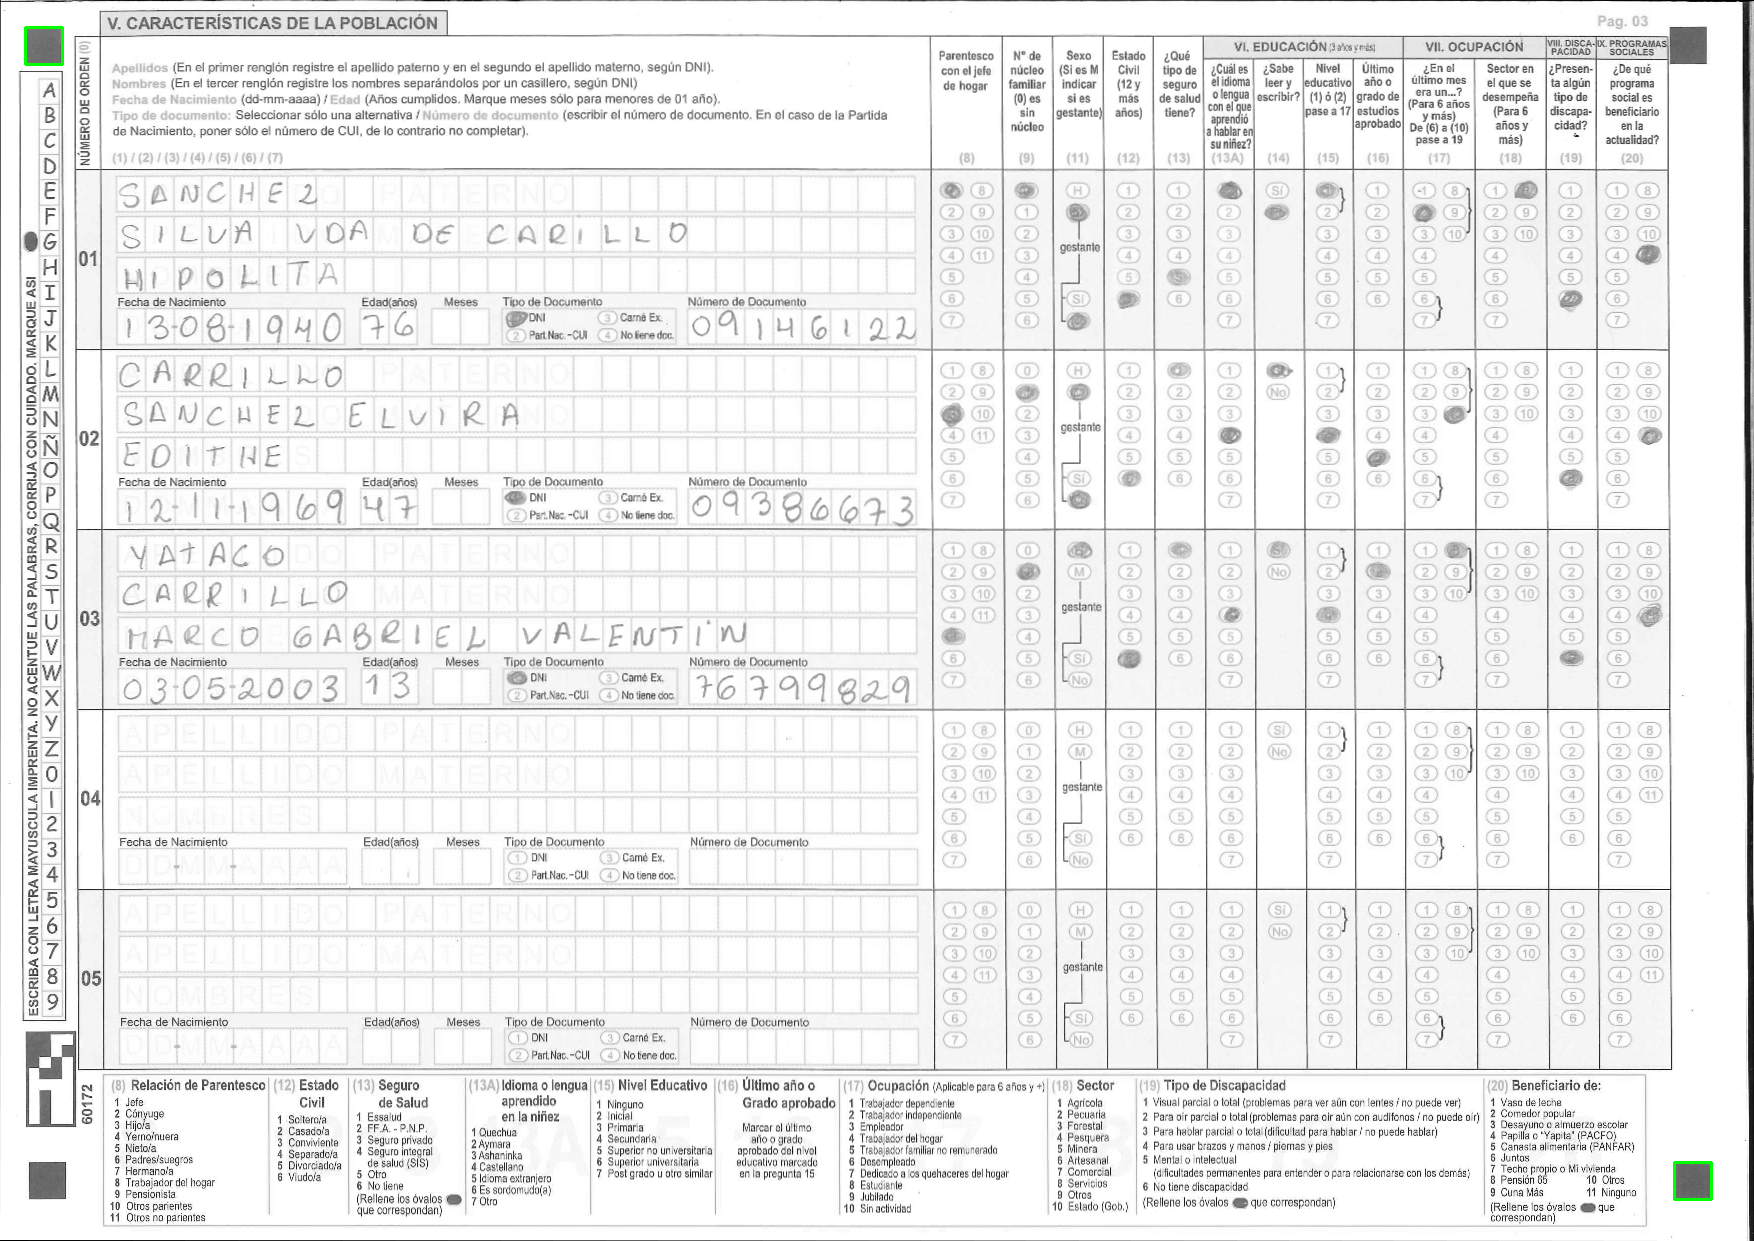 V. CARACTERÍSTICAS DE LA POBLACIÓN
Pag. 03
NÚMERO DE ORDEN (0)
Apellidos (En el primer renglón registre el apellido paterno y en el segundo el apellido materno, según DNI).
Nombres (En el tercer renglón registre los nombres separándolos por un casillero, según DNI)
Fecha de Nacimiento (dd-mm-aaaa) / Edad (Años cumplidos. Marque meses sólo para menores de 01 año).
Tipo de documento: Seleccionar sólo una alternativa / Número de documento (escribir el número de documento. En el caso de la Partida
de Nacimiento, poner sólo el número de CUI, de lo contrario no completar).
(1) / (2) / (3) / (4) / (5) / (6) / (7)
Parentesco con el jefe de hogar (8)
N° de núcleo familiar (0) es sin núcleo (9)
Sexo (Si es M indicar si es gestante) (11)
Estado Civil (12 y más años) (12)
¿Qué tipo de seguro de salud tiene? (13)
VI. EDUCACIÓN (3 años y más)
¿Cuál es el idioma o lengua con el que aprendió a hablar en su niñez? (13A)
¿Sabe leer y escribir? (14)
Nivel educativo (1) ó (2) pase a 17 (15)
Último año o grado de estudios aprobado (16)
VII. OCUPACIÓN
¿En el último mes era un...? (Para 6 años y más) De (6) a (10) pase a 19 (17)
Sector en el que se desempeña (Para 6 años y más) (18)
VIII. DISCAPACIDAD
¿Presenta algún tipo de discapacidad? (19)
IX. PROGRAMAS SOCIALES
¿De qué programa social es beneficiario en la actualidad? (20)
01
SANCHEZ
SILVA VDA DE CARILLO
HIPOLITA
Fecha de Nacimiento Edad(años) Meses Tipo de Documento Número de Documento
13-08-1940 76 DNI 3 Carné Ex. 09146122
2 Part.Nac.-CUI 4 No tiene doc.
gestante
02
CARRILLO
SANCHEZ ELVIRA
EDITHE
Fecha de Nacimiento Edad(años) Meses Tipo de Documento Número de Documento
12-11-1969 47 DNI 3 Carné Ex. 09386673
2 Part.Nac.-CUI 4 No tiene doc.
gestante
03
YATACO
CARRILLO
MARCO GABRIEL VALENTIN
Fecha de Nacimiento Edad(años) Meses Tipo de Documento Número de Documento
03-05-2003 13 DNI 3 Carné Ex. 76799829
2 Part.Nac.-CUI 4 No tiene doc.
gestante
04
APELLIDO PATERNO
APELLIDO MATERNO
NOMBRES
Fecha de Nacimiento Edad(años) Meses Tipo de Documento Número de Documento
DD-MM-AAAA 1 DNI 3 Carné Ex.
2 Part.Nac.-CUI 4 No tiene doc.
gestante
05
APELLIDO PATERNO
APELLIDO MATERNO
NOMBRES
Fecha de Nacimiento Edad(años) Meses Tipo de Documento Número de Documento
DD-MM-AAAA 1 DNI 3 Carné Ex.
2 Part.Nac.-CUI 4 No tiene doc.
gestante
ESCRIBA CON LETRA MAYUSCULA IMPRENTA. NO ACENTUE LAS PALABRAS, CORRIJA CON CUIDADO. MARQUE ASI
A B C D E F G H I J K L M N Ñ O P Q R S T U V W X Y Z 0 1 2 3 4 5 6 7 8 9
60172
(8) Relación de Parentesco
1 Jefe
2 Cónyuge
3 Hijo/a
4 Yerno/nuera
5 Nieto/a
6 Padres/suegros
7 Hermano/a
8 Trabajador del hogar
9 Pensionista
10 Otros parientes
11 Otros no parientes
(12) Estado Civil
1 Soltero/a
2 Casado/a
3 Conviviente
4 Separado/a
5 Divorciado/a
6 Viudo/a
(13) Seguro de Salud
1 Essalud
2 FF.A. - P.N.P.
3 Seguro privado
4 Seguro integral
de salud (SIS)
5 Otro
6 No tiene
(Rellene los óvalos
que correspondan)
(13A) Idioma o lengua aprendido en la niñez
1 Quechua
2 Aymara
3 Ashaninka
4 Castellano
5 Idioma extranjero
6 Es sordomudo(a)
7 Otro
(15) Nivel Educativo
1 Ninguno
2 Inicial
3 Primaria
4 Secundaria
5 Superior no universitaria
6 Superior universitaria
7 Post grado u otro similar
(16) Último año o Grado aprobado
Marcar el último
año o grado
aprobado del nivel
educativo marcado
en la pregunta 15
(17) Ocupación (Aplicable para 6 años y +)
1 Trabajador dependiente
2 Trabajador independiente
3 Empleador
4 Trabajador del hogar
5 Trabajador familiar no remunerado
6 Desempleado
7 Dedicado a los quehaceres del hogar
8 Estudiante
9 Jubilado
10 Sin actividad
(18) Sector
1 Agrícola
2 Pecuaria
3 Forestal
4 Pesquera
5 Minera
6 Artesanal
7 Comercial
8 Servicios
9 Otros
10 Estado (Gob.)
(19) Tipo de Discapacidad
1 Visual parcial o total (problemas para ver aún con lentes / no puede ver)
2 Para oír parcial o total (problemas para oír aún con audífonos / no puede oír)
3 Para hablar parcial o total (dificultad para hablar / no puede hablar)
4 Para usar brazos y manos / piernas y pies
5 Mental o intelectual
(dificultades permanentes para entender o para relacionarse con los demás)
6 No tiene discapacidad
(Rellene los óvalos que correspondan)
(20) Beneficiario de:
1 Vaso de leche
2 Comedor popular
3 Desayuno o almuerzo escolar
4 Papilla o "Yapita" (PACFO)
5 Canasta alimentaria (PANFAR)
6 Juntos
7 Techo propio o Mi vivienda
8 Pensión 65 10 Otros
9 Cuna Más 11 Ninguno
(Rellene los óvalos que
correspondan)